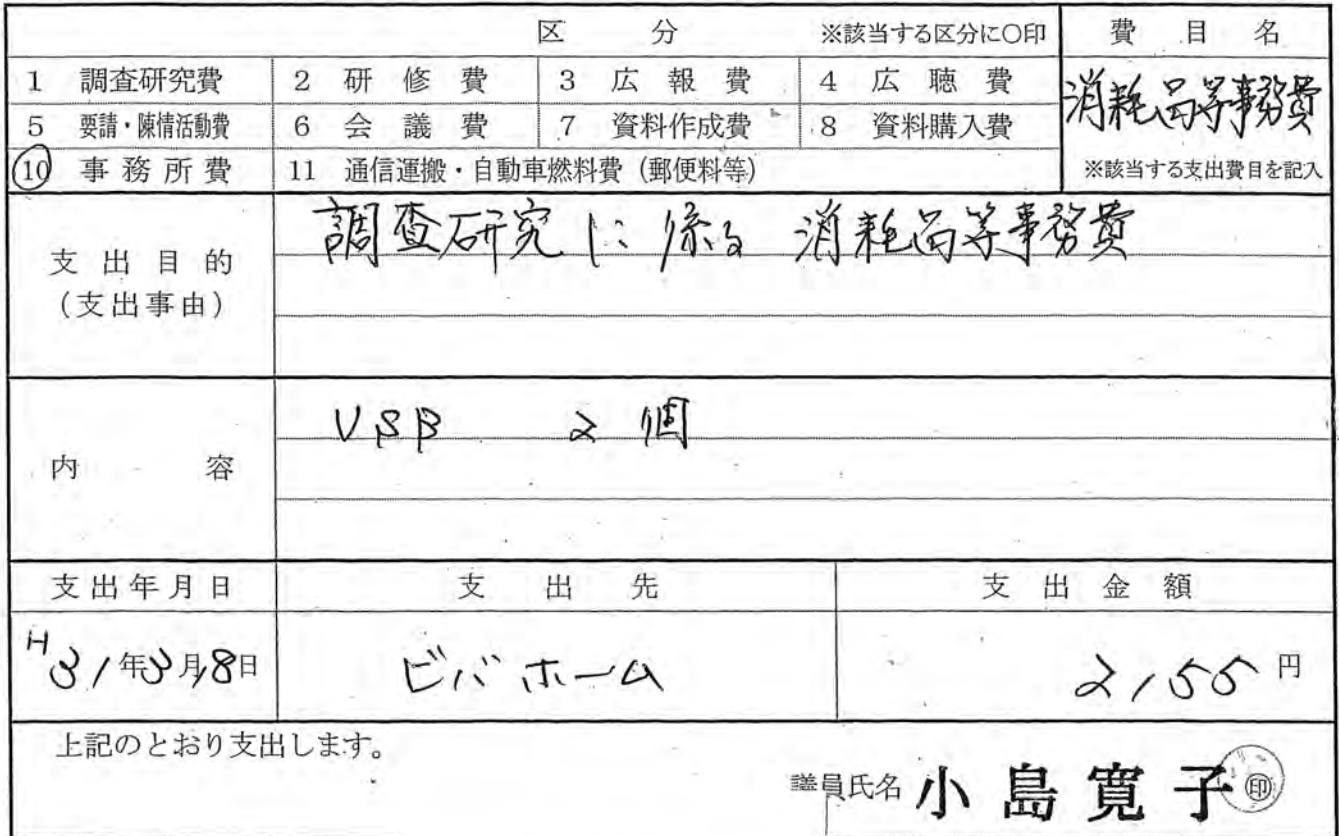 区 分 ※該当する区分に○印 費 目 名
1 調査研究費 2 研 修 費 3 広 報 費 4 広 聴 費 消耗品等事務費
5 要請・陳情活動費 6 会 議 費 7 資料作成費 8 資料購入費
⑩ 事 務 所 費 11 通信運搬・自動車燃料費(郵便料等) ※該当する支出費目を記入
支 出 目 的 調査研究に係る 消耗品等事務費
(支出事由)
USB 2個
内 容
支出年月日 支 出 先 支 出 金 額
H31年3月8日 ビバホーム 2155円
上記のとおり支出します。
議員氏名 小島寛子 印